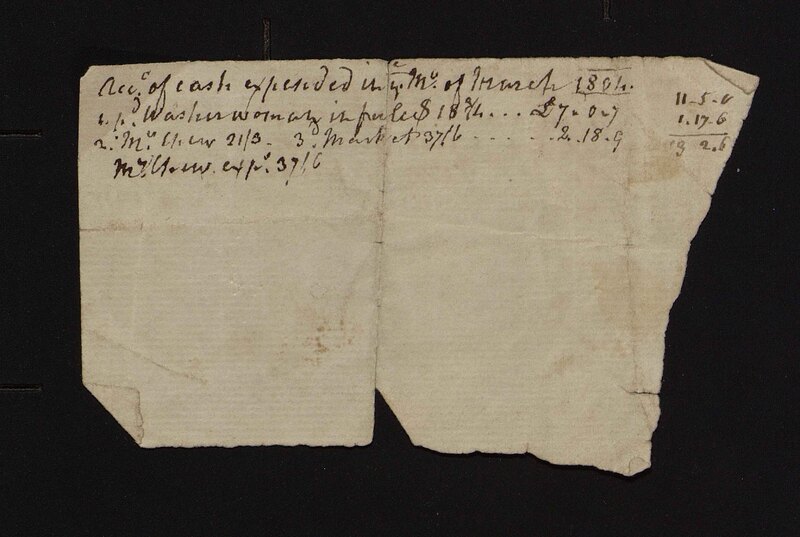 Acct. of cash expended in ye. Mo. of March 1804.
1. pd. Washerwoman in full $18¾ ... £7-0-7
2. Mr. Chew 21/3. 3d. Market 37/6 ...... 2.18.9
Mr. Chew. exps. 37/6
11-5-0
1.17-6
13 2.6